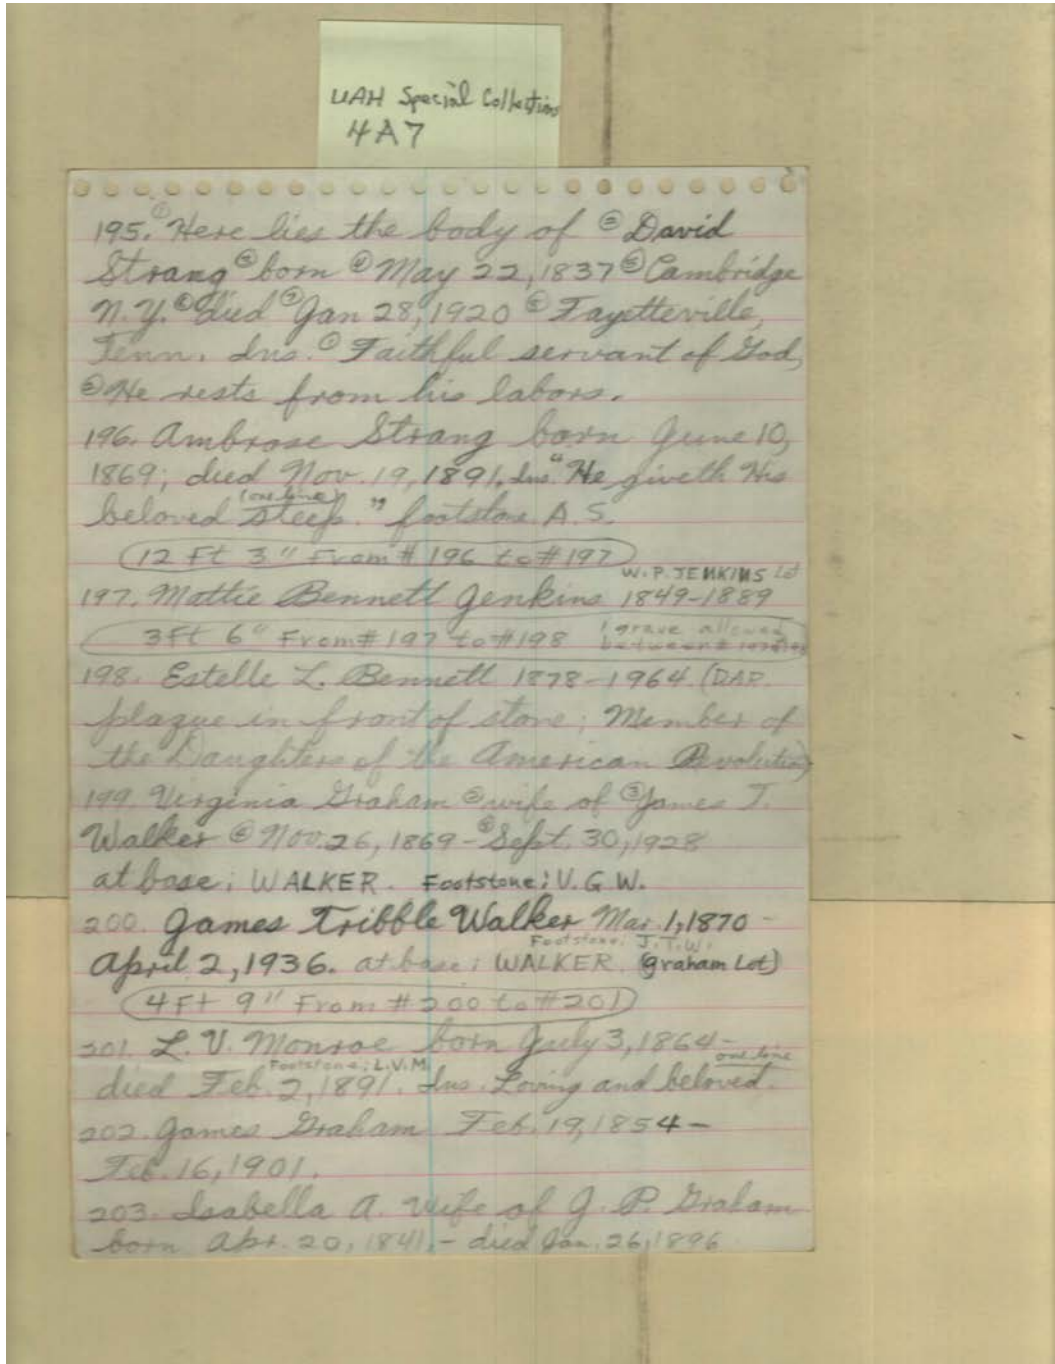 UAH Special Collections
4A7
195. ① Here lies the body of ② David
Strang ③ born ④ May 22, 1837 ⑤ Cambridge
N.Y. ⑥ died ⑦ Jan 28, 1920 ⑧ Fayetteville,
Tenn. Ins. ① Faithful servant of God,
② He rests from his labors.
196. Ambrose Strang born June 10,
1869; died Nov. 19, 1891. Ins. "He giveth His
(one line)
beloved sleep." footstone A.S.
12 Ft 3" From # 196 to # 197
W. P. JENKINS Lot
197. Mattie Bennett Jenkins 1849-1889
3 Ft 6" From # 197 to # 198 1 grave allowed
between # 197 & 198
198. Estelle L. Bennett 1878-1964 (DAR
plaque in front of stone; Member of
the Daughters of the American Revolution)
199. Virginia Graham ② wife of ③ James T.
Walker ④ Nov. 26, 1869 - ⑤ Sept. 30, 1928
at base; WALKER. Footstone; V. G. W.
200. James Tribble Walker Mar. 1, 1870 -
Footstone; J. T. W.
April 2, 1936. at base; WALKER (Graham Lot)
4 Ft 9" From # 200 to # 201
201. L. V. Monroe born July 3, 1864 -
Footstone; L.V.M. one line
died Feb. 2, 1891. Ins. Loving and beloved.
202. James Graham Feb. 19, 1854 -
Feb. 16, 1901.
203. Isabella A. wife of J. P. Graham
born Apr. 20, 1841 - died Jan. 26, 1896